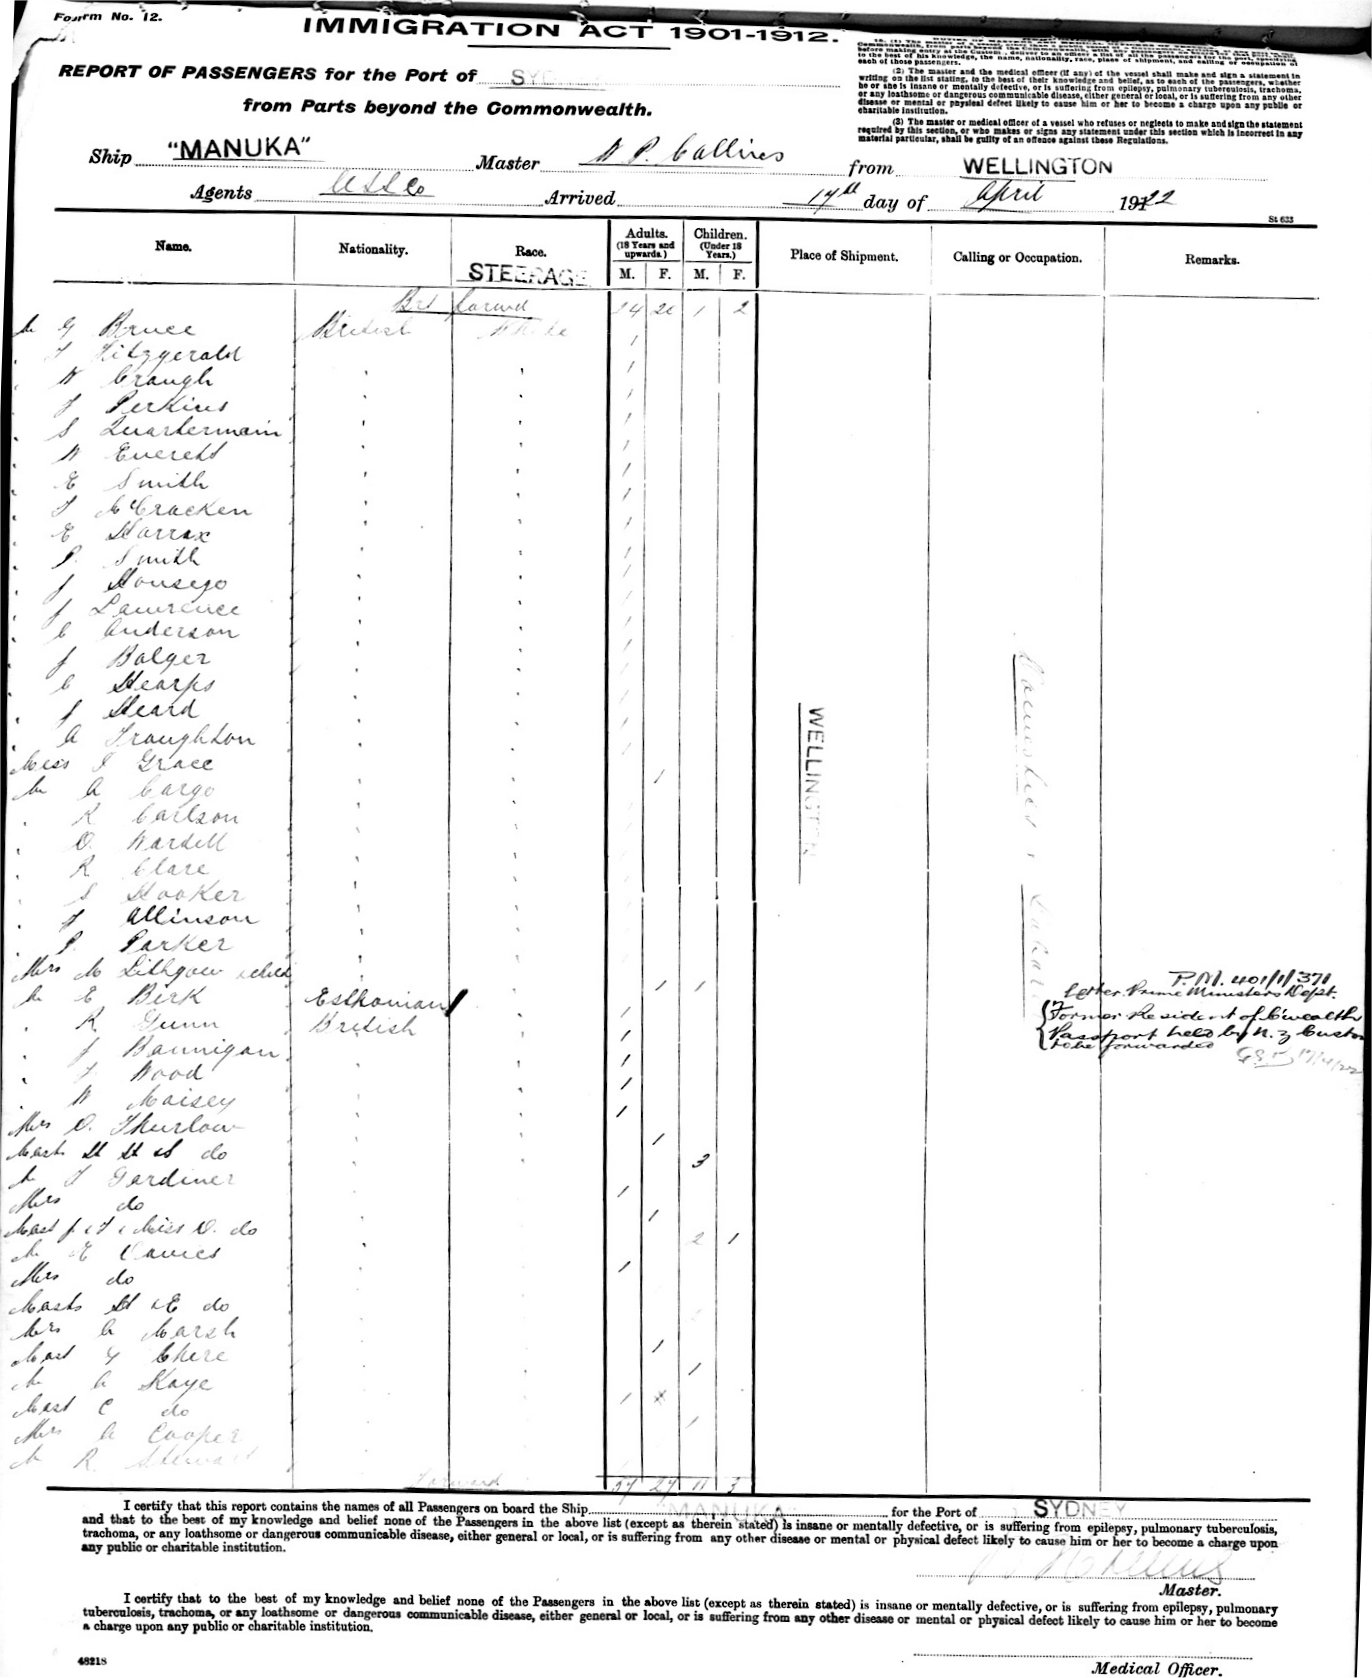 Form No. 12.
IMMIGRATION ACT 1901-1912.
REPORT OF PASSENGERS for the Port of SYD
from Parts beyond the Commonwealth.
each of those passengers.
(2) The master and the medical officer (if any) of the vessel shall make and sign a statement in
writing on the list stating, to the best of their knowledge and belief, as to each of the passengers, whether
he or she is insane or mentally defective, or is suffering from epilepsy, pulmonary tuberculosis, trachoma,
or any loathsome or dangerous communicable disease, either general or local, or is suffering from any other
disease or mental or physical defect likely to cause him or her to become a charge upon any public or
charitable institution.
(3) The master or medical officer of a vessel who refuses or neglects to make and sign the statement
required by this section, or who makes or signs any statement under this section which is incorrect in any
material particular, shall be guilty of an offence against these Regulations.
Ship "MANUKA" Master W P. Collines from WELLINGTON
Agents USSCo Arrived 17th day of April 1922
St 633
Name. Nationality. Race. Adults. (18 Years and upwards.) M. F. Children. (Under 18 Years.) M. F. Place of Shipment. Calling or Occupation. Remarks.
STEERAGE
Brt forwd 34 20 1 2
Mr G Bruce British White
T Fitzgerald 1
W Craugh 1
J Perkins 1
S Quartermain 1
W Everett 1
E Smith 1
T McCracken 1
E Harrax 1
P. Smith 1
J Housego 1
J Lawrence 1
C Anderson 1
J Bolger 1
C Hearps 1
J Heard 1
A Troughton 1
Miss I Grace 1
Mr A Cargo
K Carlson
O. Wardell
R Clare
S Hooker
J Allinson
P. Parker
Mrs M Lithgow & child 1 1
Mr E Birk Esthonian 1
R. Gunn British 1
J Bannigan 1
T. Wood 1
W Maisey 1
Mrs O. Thurlow 1
Mast H H & S do 3
Mr T Gardiner 1
Mrs do 1
Mast J & T & Miss O. do 2 1
Mr E Davies 1
Mrs do
Masts H & E do
Mrs A Marsh 1
Mast G Chere 1
Mr A Kaye 1
Mast C do 1
Mrs A Cooper
Mr R. Stewart
forward 57 27 11 3
WELLINGTON
P.M. 401/1/371
Letter Prime Ministers Dept.
Former Resident of C'wealth
Passport held by N.Z Custom
to be forwarded 17/4/22
I certify that this report contains the names of all Passengers on board the Ship "MANUKA" for the Port of SYDNEY
and that to the best of my knowledge and belief none of the Passengers in the above list (except as therein stated) is insane or mentally defective, or is suffering from epilepsy, pulmonary tuberculosis,
trachoma, or any loathsome or dangerous communicable disease, either general or local, or is suffering from any other disease or mental or physical defect likely to cause him or her to become a charge upon
any public or charitable institution.
Master.
I certify that to the best of my knowledge and belief none of the Passengers in the above list (except as therein stated) is insane or mentally defective, or is suffering from epilepsy, pulmonary
tuberculosis, trachoma, or any loathsome or dangerous communicable disease, either general or local, or is suffering from any other disease or mental or physical defect likely to cause him or her to become
a charge upon any public or charitable institution.
48218
Medical Officer.